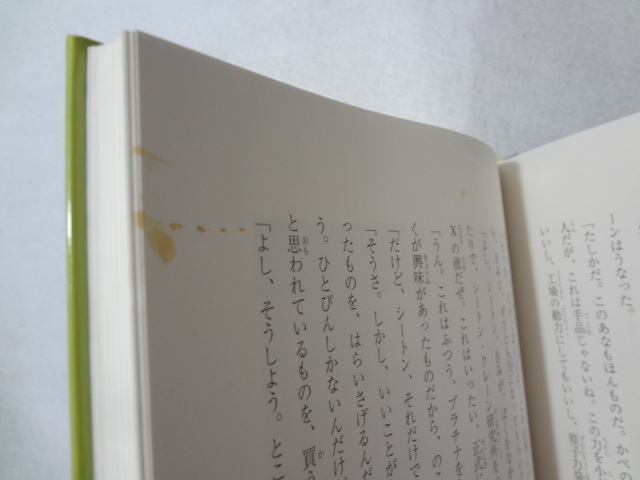 ーンはうなった。
「たしかだ。このあなもほんものだ。かべの
人だが、これは手品じゃないね。この力を小
いいし、工場の動力にしてもいいし、原子力発
「よし、シートン・クレーン研究所を
たりで、シートン・クレーン研究所を
Xの液だぜ。これはいったい、正式に
「うん。これはふつう、プラチナを
くが興味があったものだから、のこ
「だけど、シートン、それだけで
「そうさ。しかし、いいことが
ったものを、はらいさげるんだ
う。ひとびんしかないんだけ
と思われているものを、買う
「よし、そうしよう。とこ